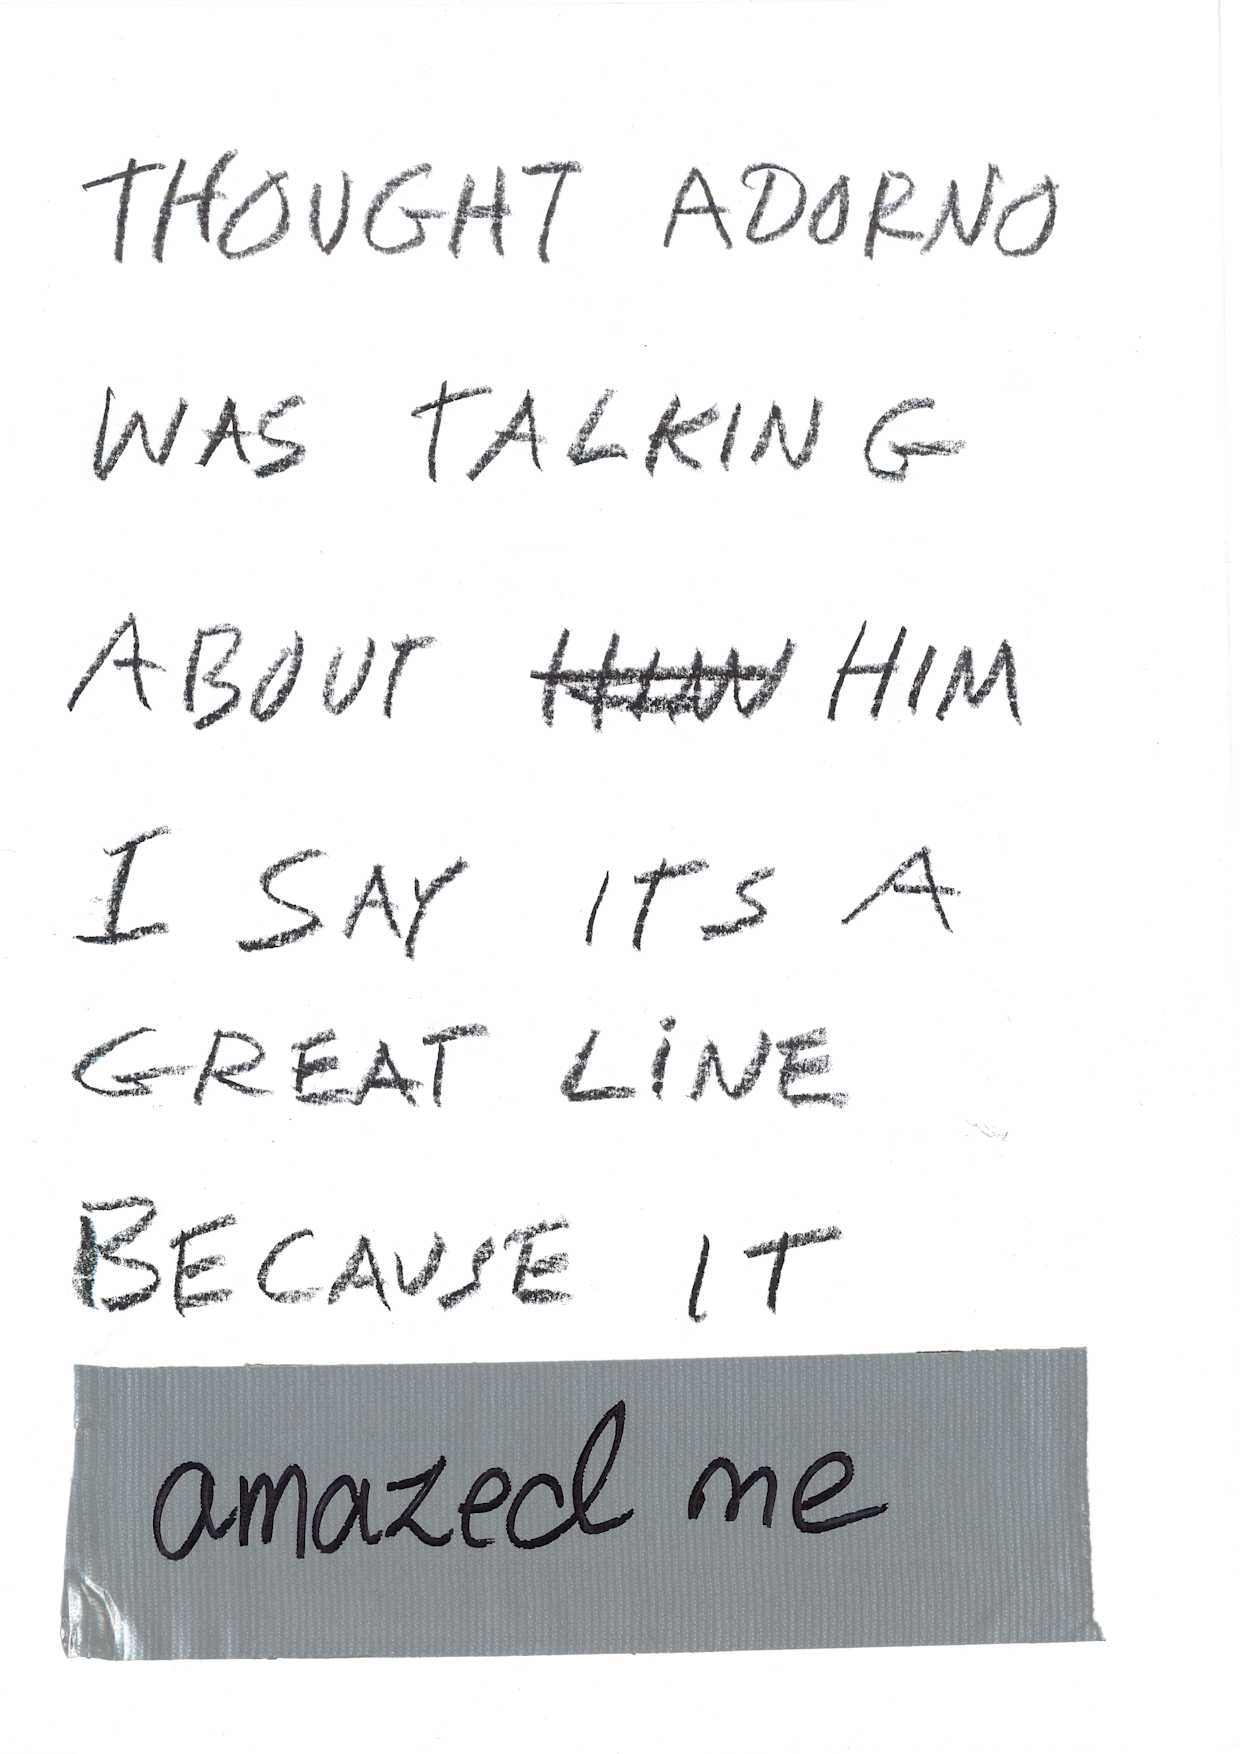 THOUGHT ADORNO
WAS TALKING
ABOUT HIM
I SAY ITS A
GREAT LiNE
BECAUSE IT
amazed me